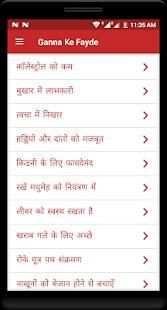 11:35 AM
Ganna Ke Fayde
कॉलेस्ट्रोल को कम
बुखार में लाभकारी
त्वचा में निखार
हड्डियों और दातों को मजबूत
किडनी के लिए फायदेमंद
रखें मधुमेह को नियंत्रण में
लीवर को स्वस्थ रखता है
खराब गले के लिए अच्छे
रोके मूत्र पथ संक्रमण
नाखूनों को बेजान होने से बचाएँ